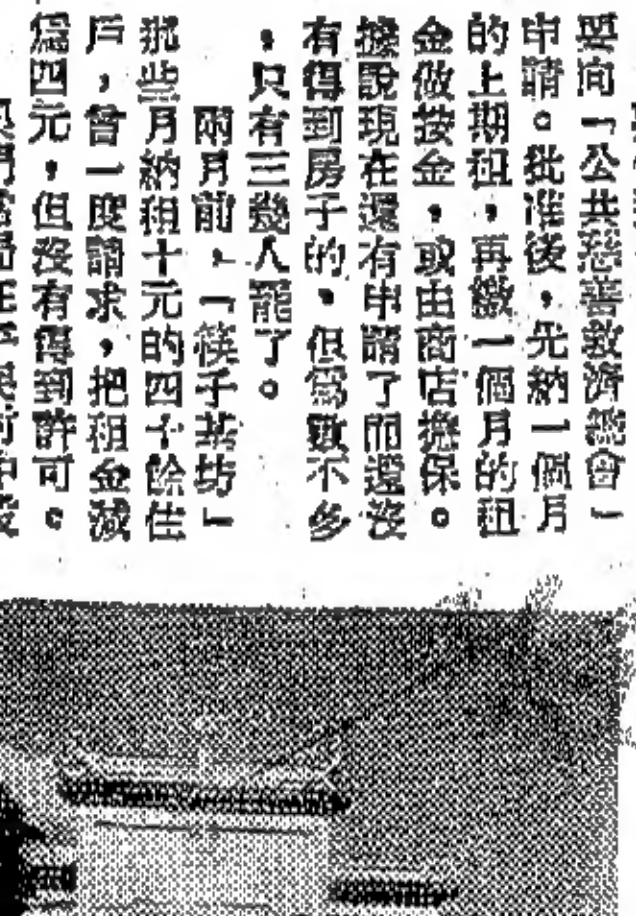 要向「公共慈善救濟總會」
申請。批准後,先納一個月
的上期租,再繳一個月的租
金做按金,或由商店擔保。
據說現在還有申請了而還沒
有得到房子的,但爲數不多
,只有三幾人罷了。
兩月前,「筷子基坊」
那些月納租十元的四十餘住
戶,曾一度請求,把租金減
爲四元,但沒有得到許可。